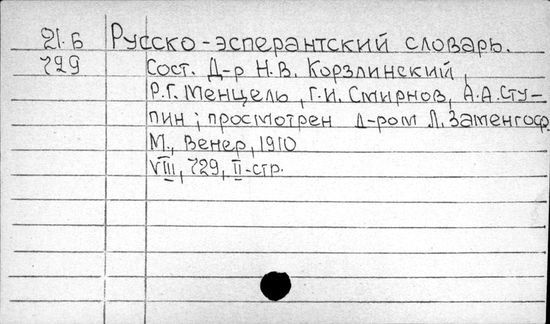 21.Б Русско-эсперантский словарь.
729 Сост. Д-р Н.В. Корзлинский,
Р.Г. Менцель, Г.И. Смирнов, А.А. Сту-
пин; просмотрен д-ром Л. Заменгоф.
М., Венер, 1910
VIII, 729, II-стр.